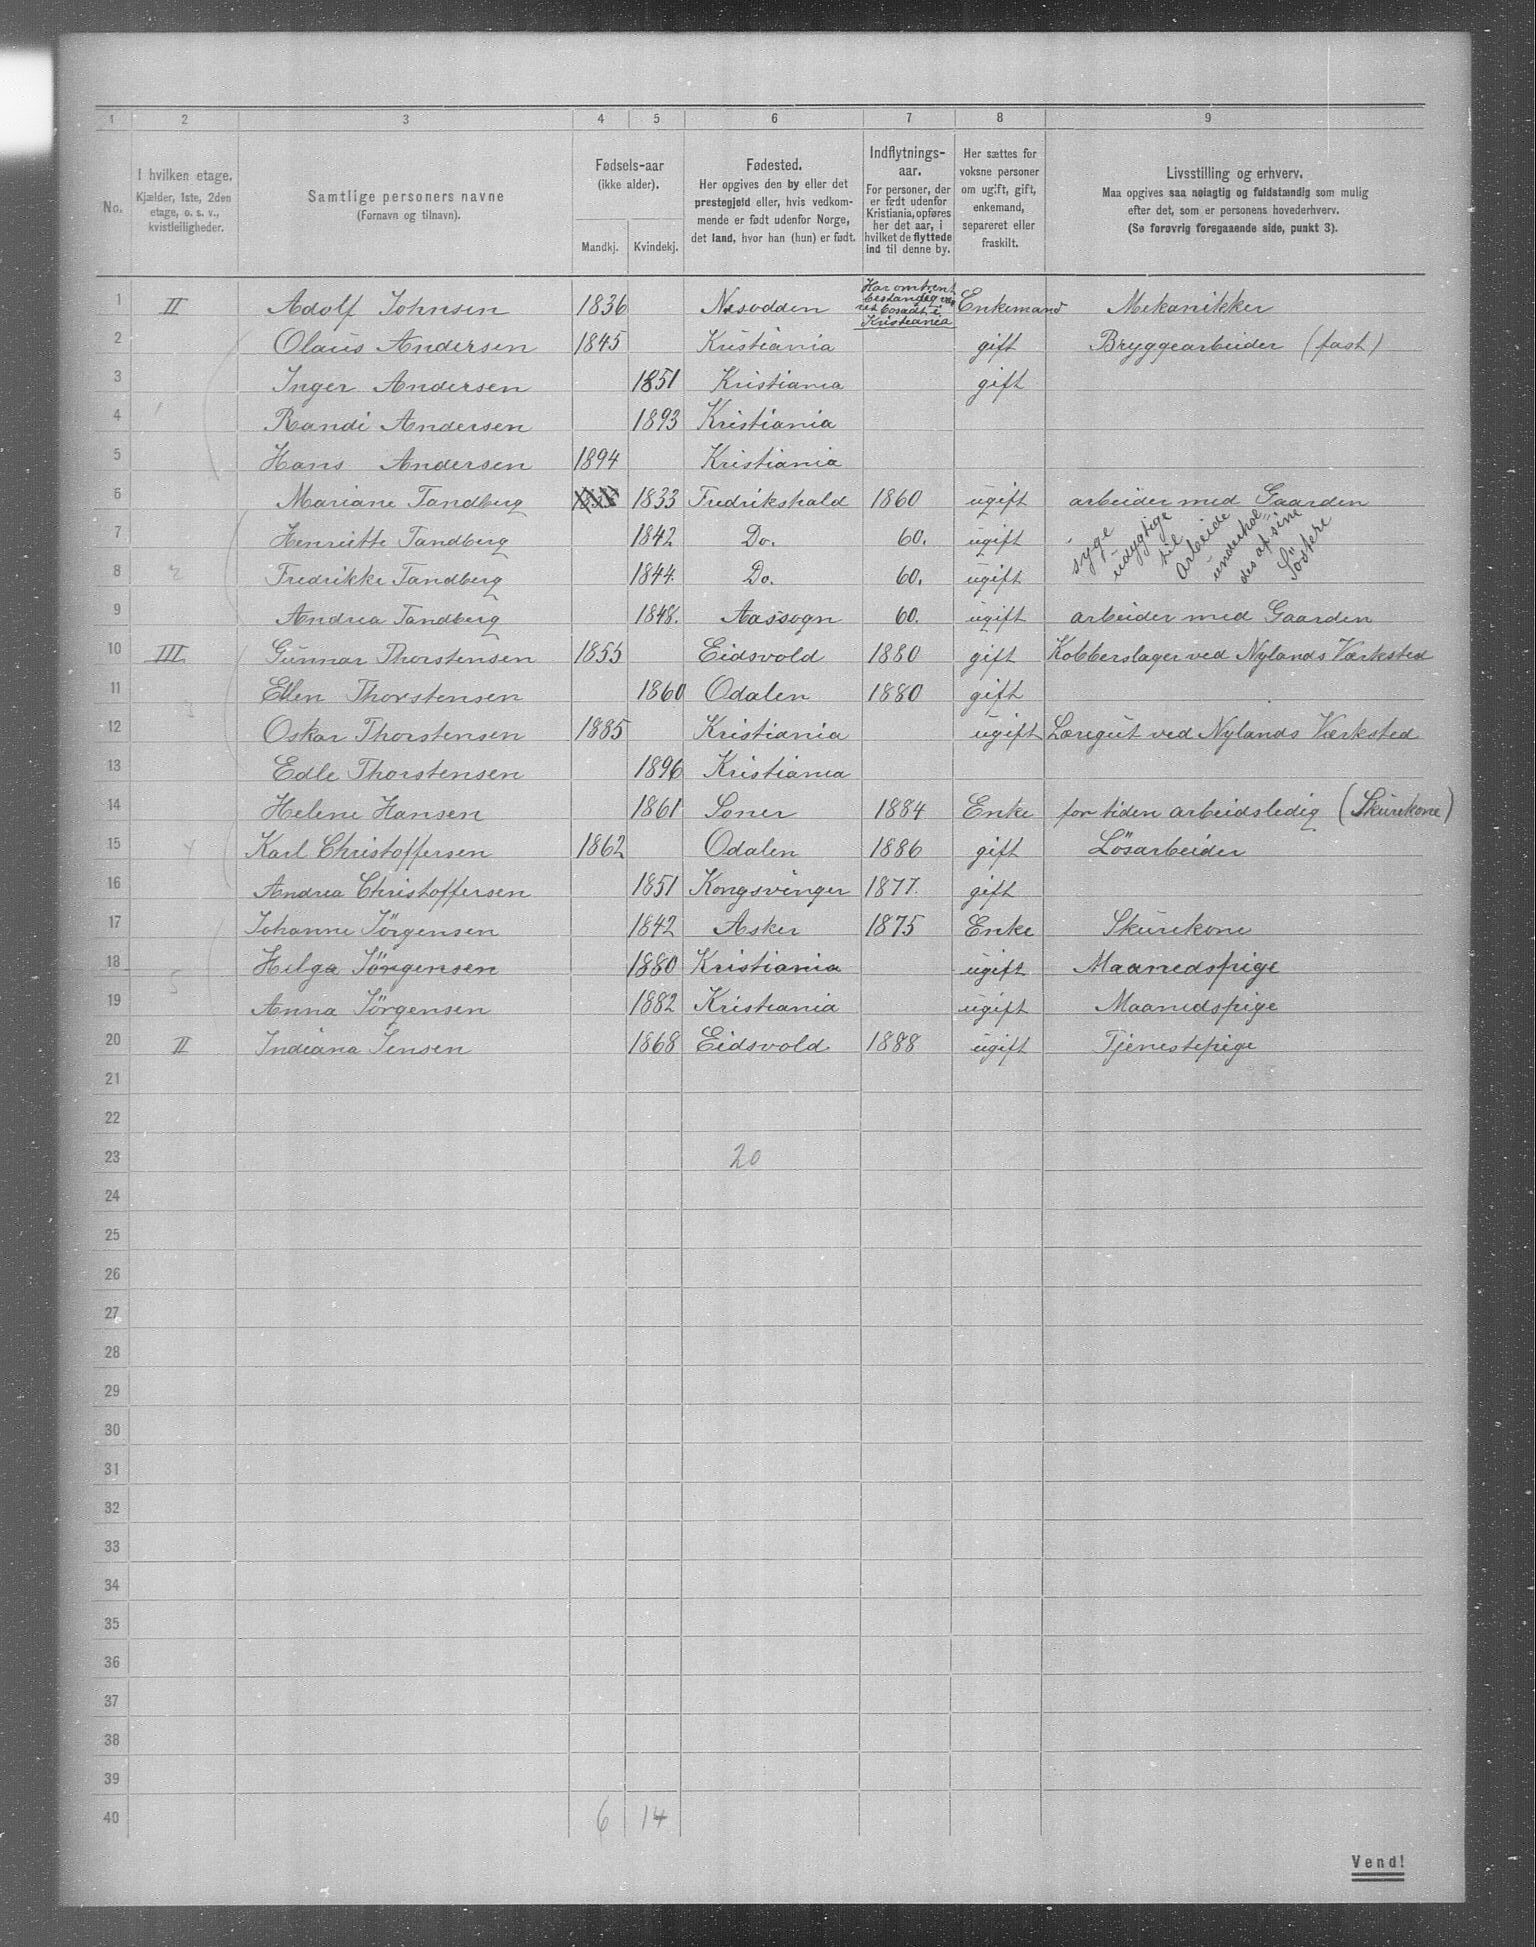 1 2 3 4 5 6 7 8 9
No.
I hvilken etage.
Kjælder, 1ste, 2den
etage, o. s. v.,
kvistleiligheder.
Samtlige personers navne
(Fornavn og tilnavn).
Fødsels-aar
(ikke alder).
Mandkj. Kvindekj.
Fødested.
Her opgives den by eller det
prestegjeld eller, hvis vedkom-
mende er født udenfor Norge,
det land, hvor han (hun) er født.
Indflytnings-
aar.
For personer, der
er født udenfor
Kristiania, opføres
her det aar, i
hvilket de flyttede
ind til denne by.
Her sættes for
voksne personer
om ugift, gift,
enkemand,
separeret eller
fraskilt.
Livsstilling og erhverv.
Maa opgives saa nøiagtig og fuldstændig som mulig
efter det, som er personens hovederhverv.
(Se forøvrig foregaaende side, punkt 3).
1 II Adolf Johnsen 1836 Nesodden Har omtrent bestandig væ ret bosadt i Kristiania Enkemand Mekanikker
2 Olaus Andersen 1845 Kristiania gift Bryggearbeider (fast)
3 Inger Andersen 1851 Kristiania gift
4 1 Randi Andersen 1893 Kristiania
5 Hans Andersen 1894 Kristiania
6 Mariane Tandberg 1833 Fredrikshald 1860 ugift arbeider med Gaarden
7 Henriette Tandberg 1842 Do. 60. ugift syge udygtige til arbeide underhol= des af sine Söstere
8 2 Fredrikke Tandberg 1844. Do. 60. ugift
9 Andrea Tandberg 1848. Aassogn 60. ugift arbeider med Gaarden
10 III Gunnar Thorstensen 1855 Eidsvold 1880 gift Kobberslager ved Nylands Værksted
11 3 Ellen Thorstensen 1860 Odalen 1880 gift
12 Oskar Thorstensen 1885 Kristiania ugift Læregut ved Nylands Værksted
13 Edle Thorstensen 1896 Kristiania
14 Helene Hansen 1861 Soner 1884 Enke for tiden arbeidsledig (Skurekone)
15 4 Karl Christoffersen 1862 Odalen 1886 gift Lösarbeider
16 Andrea Christoffersen 1851 Kongsvinger 1877. gift
17 Johanne Jörgensen 1842 Asker 1875 Enke Skurekone
18 5 Helga Jörgensen 1880 Kristiania ugift Maanedspige
19 Anna Jörgensen 1882 Kristiania ugift Maanedspige
20 II Indiana Jensen 1868 Eidsvold 1888 ugift Tjenestepige
21
22
23 20
24
25
26
27
28
29
30
31
32
33
34
35
36
37
38
39
40 6 14
Vend!